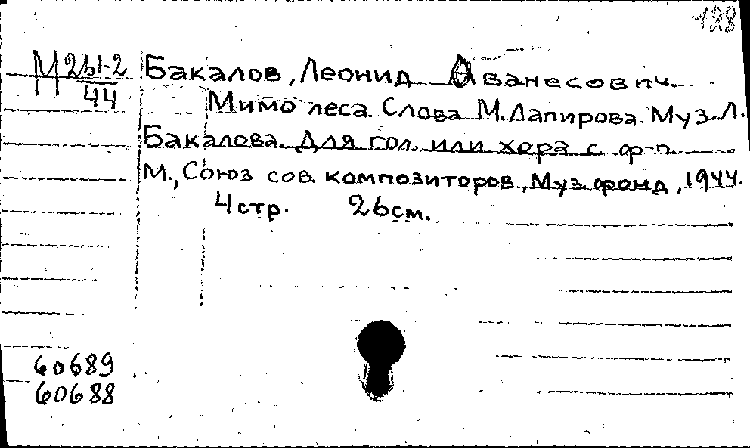 128
М 261-2
44
Бакалов, Леонид Ованесович.
Мимо леса. Слова М. Лапирова. Муз. Л.
Бакалова. Для гол. или хора с ф-п.
М., Союз сов. композиторов, Муз. фонд, 1944.
4 стр. 26 см.
60689
60688